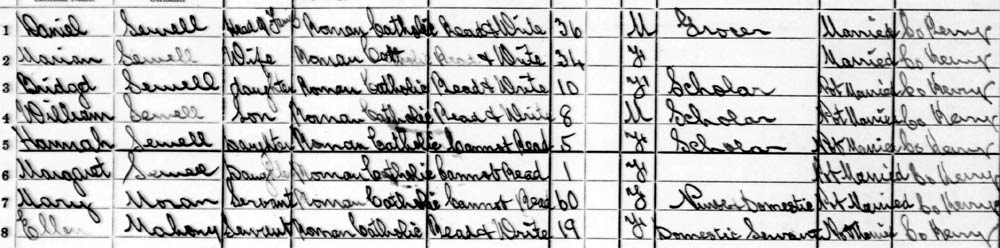 1 Daniel Sewell Head of Family Roman Catholic Read & Write 36 M Grocer Married Co Kerry
2 Marian Sewell Wife Roman Catholic Read & Write 34 F Married Co Kerry
3 Bridget Sewell daughter Roman Catholic Read & Write 10 F Scholar Not Married Co Kerry
4 William Sewell Son Roman Catholic Read & Write 8 M Scholar Not Married Co Kerry
5 Hannah Sewell Daughter Roman Catholic Cannot Read 5 F Scholar Not Married Co Kerry
6 Margaret Sewell Daughter Roman Catholic Cannot Read 1 F Not Married Co Kerry
7 Mary Moran Servant Roman Catholic Cannot Read 60 F Nurse Domestic Not Married Co Kerry
8 Ellen Mahony Servant Roman Catholic Read & Write 19 F Domestic Servant Not Married Co Kerry